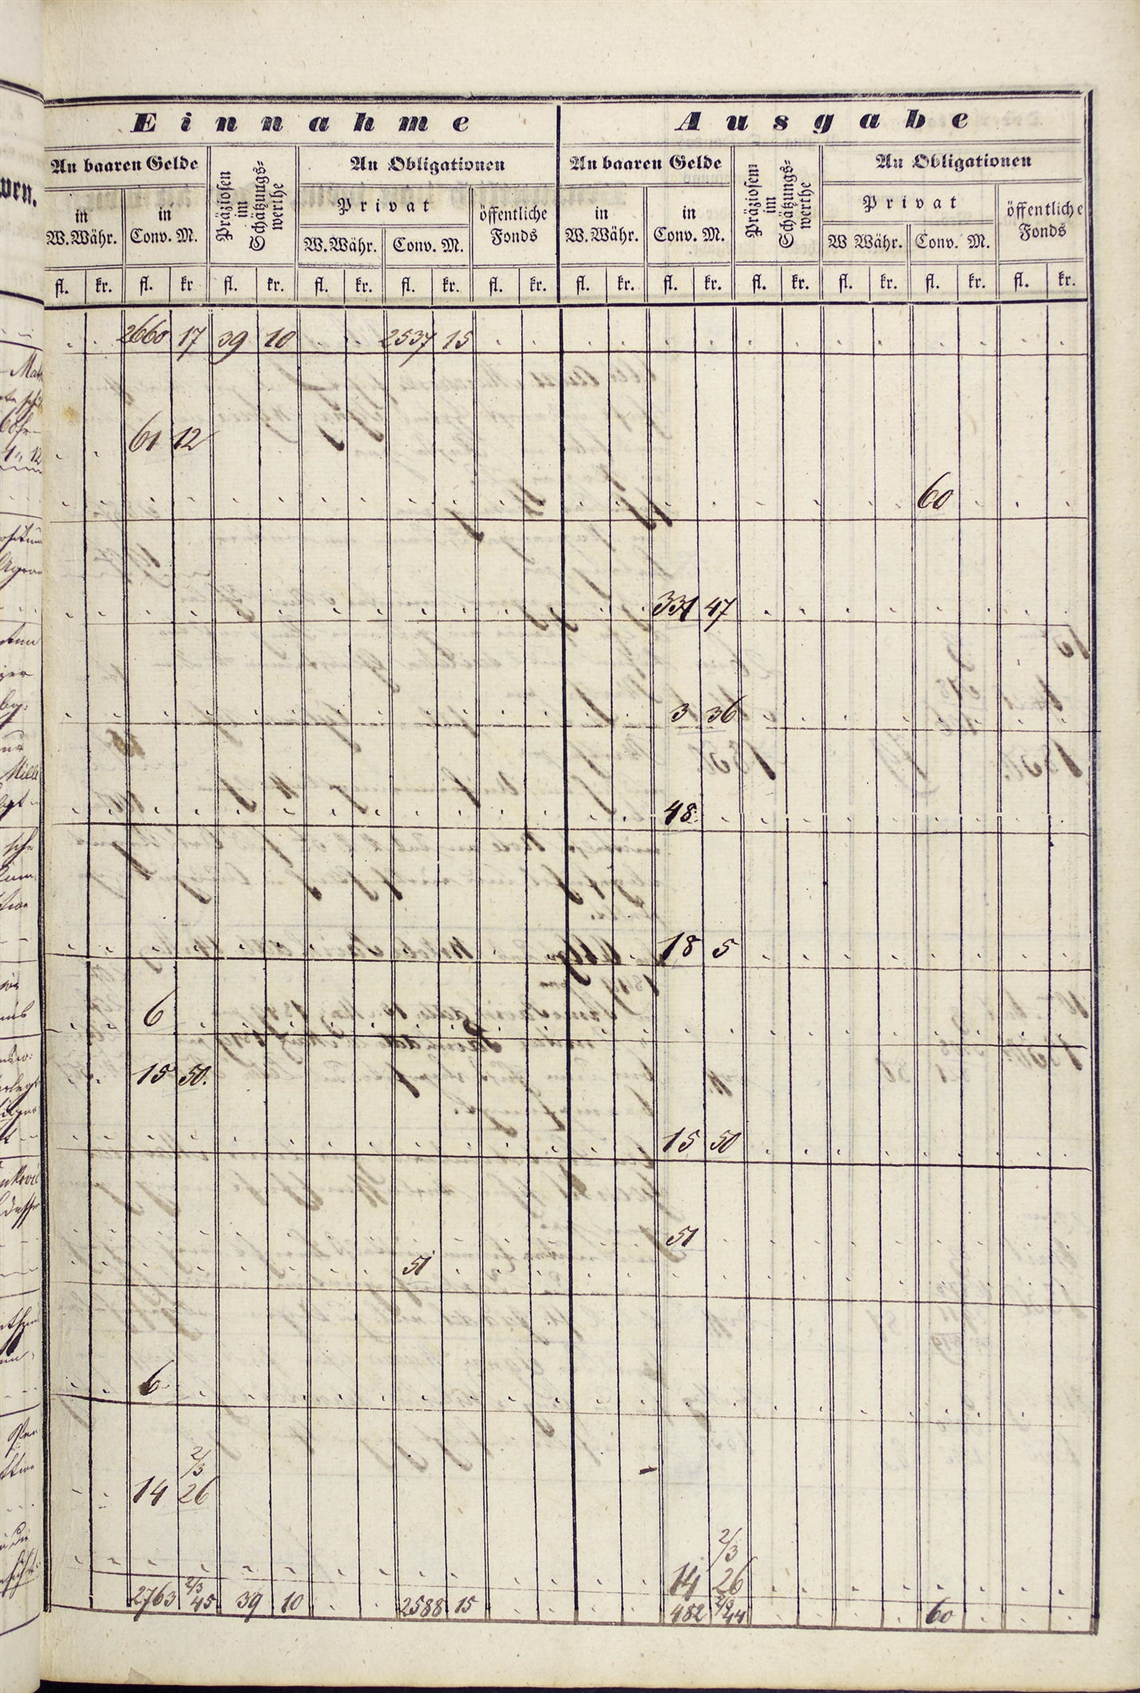 Einnahme Ausgabe
An baaren Gelde Präziosen im Schätzungs-werthe An Obligationen An baaren Gelde Präziosem im Schätzungs-werthe An Obligationen
in W. Währ. in Conv. M. Privat öffentliche Fonds in W. Währ. in Conv. M. Privat öffentliche Fonds
W. Währ. Conv. M. W Währ. Conv. M.
fl. kr. fl. kr fl. kr. fl. kr. fl. kr. fl. kr. fl. kr. fl. kr. fl. kr. fl. kr. fl. kr. fl. kr.
2660 17 39 10 2537 15
61 12
60
331 47
3 36
48
18 5
6
15 50.
15 50
51
51
6
2/3
14 26
2/3
14 26
2763 2/3 45 39 10 2588 15 482 2/3 44 60